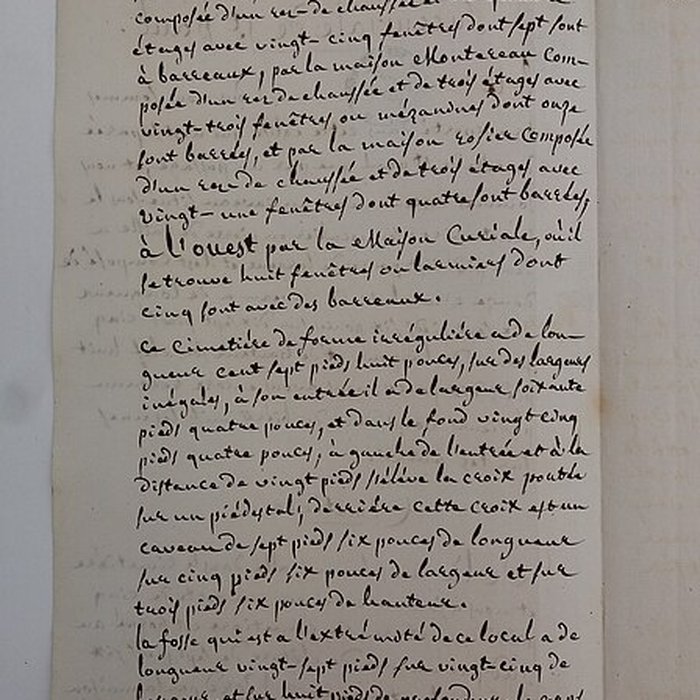 composée d'un rez-de chaussée et
étages avec vingt-cinq fenêtres dont sept sont
à barreaux, par la maison Montereau Com-
posée d'un rez de chaussée et de trois étages avec
vingt-trois fenêtres ou mézanines dont onze
sont barrées, et par la maison rosier Composée
d'un rez-de chaussée et de trois étages avec
vingt-une fenêtres dont quatre sont barrées;
à l'ouest par la Maison Curiale, où il
se trouve huit fenêtres ou larmiers dont
cinq sont avec des barreaux.
ce Cimetière de forme irrégulière a de lon-
gueur cent sept pieds huit pouces, sur des largeurs
inégales, à son entrée il a de largeur soixante
pieds quatre pouces, et dans le fond vingt cinq
pieds quatre pouces, à gauche de l'entrée et à la
distance de vingt pieds s'élève la croix
sur un piédestal; derrière cette croix est un
caveau de sept pieds six pouces de longueur
sur cinq pieds six pouces de largeur et sur
trois pieds six pouces de hauteur.
la fosse qui est a l'extrémité de ce local a de
longueur vingt-sept pieds sur vingt-cinq de
largeur, et sur huit pieds de profondeur